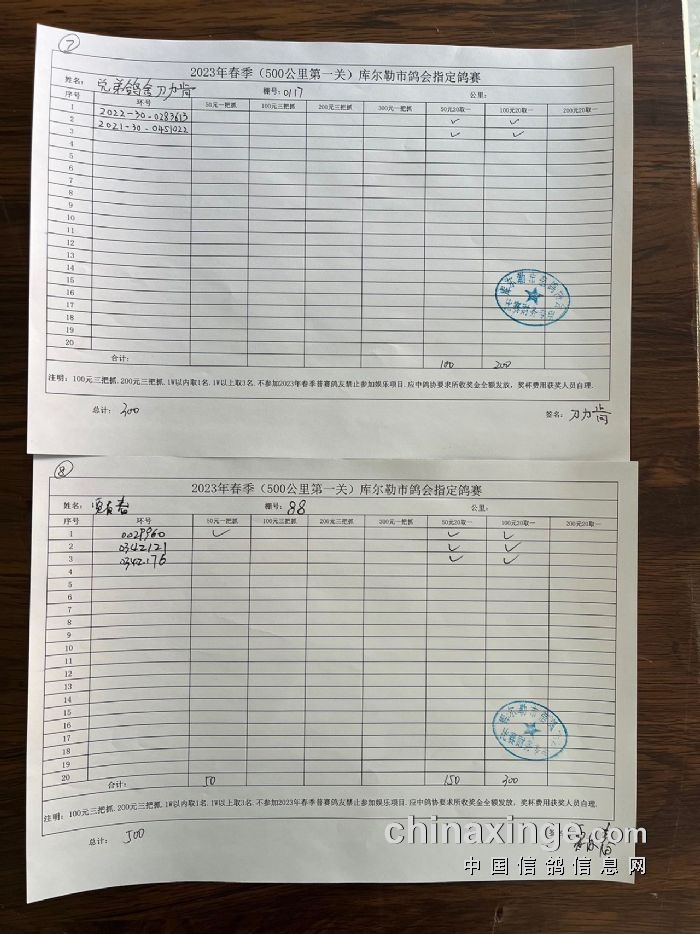 7
2023年春季（500公里第一关）库尔勒市鸽会指定鸽赛
姓名： 兄弟鸽舍刀力 棚号：0117 公里：
序号 环号 50元一把抓 100元三把抓 200元三把抓 300元一把抓 50元20取一 100元20取一 200元20取一
1 2022-30-0283613 ✓ ✓
2 2021-30-0451022 ✓ ✓
3
4
5
6
7
8
9
10
11
12
13
14
15
16
17
18
19
20
合计： 100 200
注明：100元三把抓.200元三把抓.1W以内取1名.1W以上取3名.不参加2023年春季普赛鸽友禁止参加娱乐项目.应中鸽协要求所收奖金全额发放，奖杯费用获奖人员自理.
总计： 300 签名： 刀力
8
2023年春季（500公里第一关）库尔勒市鸽会指定鸽赛
姓名： 棚号： 88 公里：
序号 环号 50元一把抓 100元三把抓 200元三把抓 300元一把抓 50元20取一 100元20取一 200元20取一
1 0029960 ✓ ✓ ✓
2 0342121 ✓ ✓
3 0342176 ✓ ✓
4
5
6
7
8
9
10
11
12
13
14
15
16
17
18
19
20
合计： 50 150 300
注明：100元三把抓.200元三把抓.1W以内取1名.1W以上取3名.不参加2023年春季普赛鸽友禁止参加娱乐项目.应中鸽协要求所收奖金全额发放，奖杯费用获奖人员自理.
总计： 500
chinaxinge.com
中国信鸽信息网